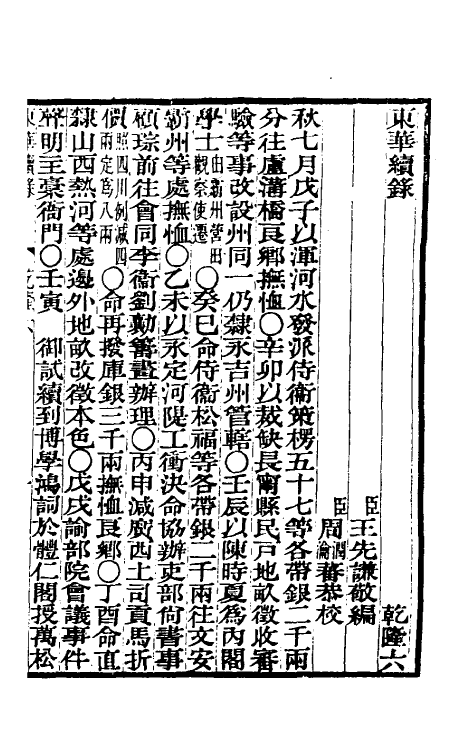 東華續錄　乾隆六
臣王先謙敬編
臣周潤蕃周瀹蕃恭校
秋七月戊子以渾河水發派侍衞策楞五十七等各帶銀二千兩
分往盧溝橋良鄉撫恤○辛卯以裁缺長甯縣民戸地畝徵收審
驗等事改設州同一仍隸永吉州管轄○壬辰以陳時夏爲內閣
學士由新州營田觀察使遷○癸巳命侍衞松福等各帶銀二千兩往文安
霸州等處撫恤○乙未以永定河隄工衝決命協辦吏部尙書事
顧琮前往會同李衞劉勷籌畫辦理○丙申減廣西土司貢馬折
價照四川例減四兩定爲八兩○命再撥庫銀三千兩撫恤良鄉○丁酉命直
隸山西熱河等處邊外地畝改徵本色○戊戌諭部院會議事件
辭明主稾衙門○壬寅　御試續到博學鴻詞於體仁閣授萬松
東華續錄　乾隆六